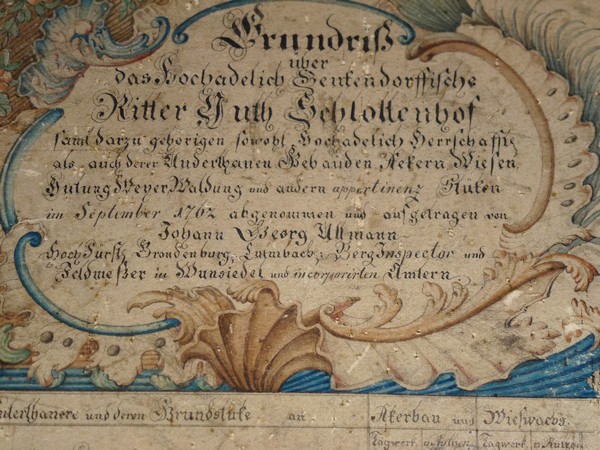 Grundriß
über
das Hochadelich Senkendorffische
Ritter Guth Schlottenhof
samt darzu gehörigen sowohl Hochadelich Herrschaftl
als auch derer Underthanen Gebäuden, Aekern Wiesen
Hutung Weyer, Waldung und andern appertinenz Stüken
im September 1762 abgenommen und aufgetragen von
Johann Georg Ullmann
Hoch Fürstl. Brandenburg, Culmbach. BergInspector und
Feldmeßer in Wunsiedel und incorporirten Ämtern
Underthanen und deren Grundstüke an Akerbau und Wießwachs
Tagwerk Tagwerk